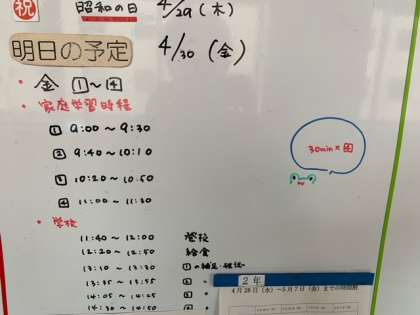 祝 昭和の日 4/29(木)
明日の予定 4/30(金)
・金 1~4
・家庭学習時程
1 9:00~9:30
2 9:40~10:10
3 10:20~10:50
4 11:00~11:30
30min×4
・学校
11:40~12:00 登校
12:20~12:50 給食
13:10~13:30 1の補足・確認
13:35~13:55 2 〃
14:05~14:25 3 〃
14:30~14:50 4 〃
2年
4月28日(水)~5月7日(金)までの時間割